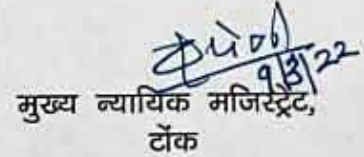 9/3/22
मुख्य न्यायिक मजिस्ट्रेट,
टोंक